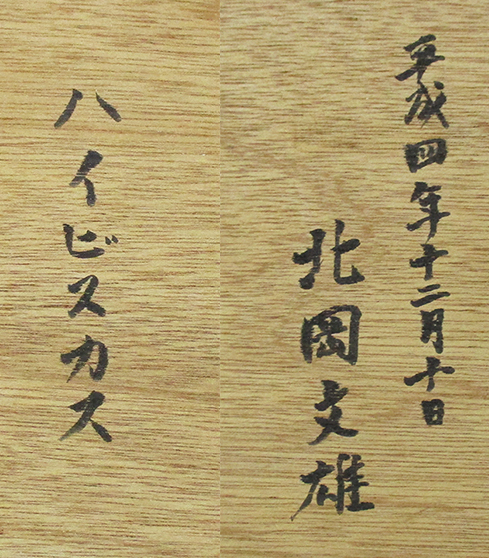 平成四年十二月十日
北岡文雄
ハイビスカス